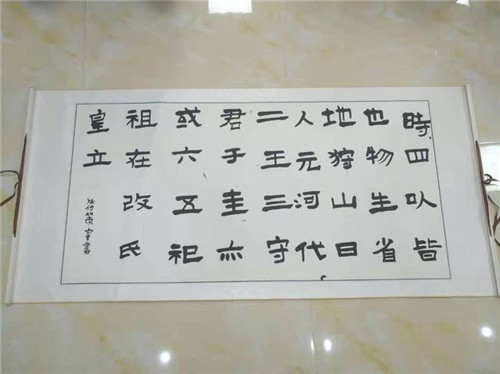 時四以皆
也物生省
地狩山日
人元河代
二王三守
君于圭亦
或六五祀
祖在改氏
皇立